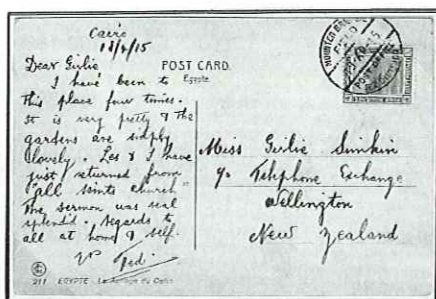 Cairo
18/4/15
Dear Girlie
POST CARD.
Egypte
I have been to
this place four times.
It is very pretty & the
gardens are simply
lovely. Les & I have
just returned from
"all saints church"
The sermon was real
splendid. Regards to
all at home & self.
Miss Girlie Simkin
c/o Telephone Exchange
Wellington
New Zealand
MOUNTED
FIELD
POST OFFICE
211 EGYPTE